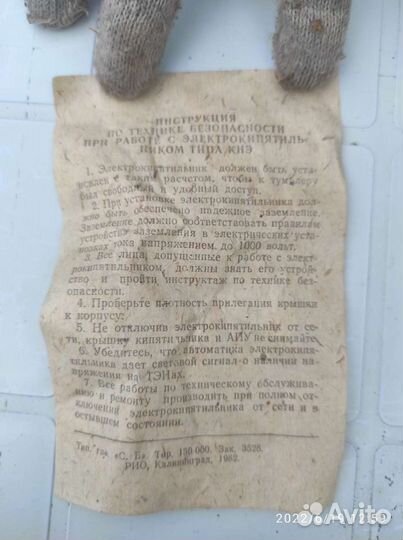 ИНСТРУКЦИЯ
ПО ТЕХНИКЕ БЕЗОПАСНОСТИ
ПРИ РАБОТЕ С ЭЛЕКТРОКИПЯТИЛЬ-
НИКОМ ТИПА КНЭ
1. Электрокипятильник должен быть уста-
новлен с таким расчетом, чтобы к тумблеру
был свободный и удобный доступ.
2. При установке электрокипятильника дол-
жно быть обеспечено надежное заземление.
Заземление должно соответствовать правилам
устройства заземления в электрических уста-
новках тока напряжением до 1000 вольт.
3. Все лица, допущенные к работе с элект-
рокипятильником, должны знать его устрой-
ство и пройти инструктаж по технике безо-
пасности.
4. Проверьте плотность прилегания крышки
к корпусу.
5. Не отключив электрокипятильник от се-
ти, крышку кипятильника и АИУ не снимайте.
6. Убедитесь, что автоматика электрокипя-
тильника дает световой сигнал о наличии нап-
ряжения на ТЭНах.
7. Все работы по техническому обслужива-
нию и ремонту производить при полном от-
ключении электрокипятильника от сети и в
остывшем состоянии.
Тип. гаф. «С. Б» Тир. 150 000. Зак. 3526.
РИО, Калининград, 1982.
2022/6/19 12:59
Avito